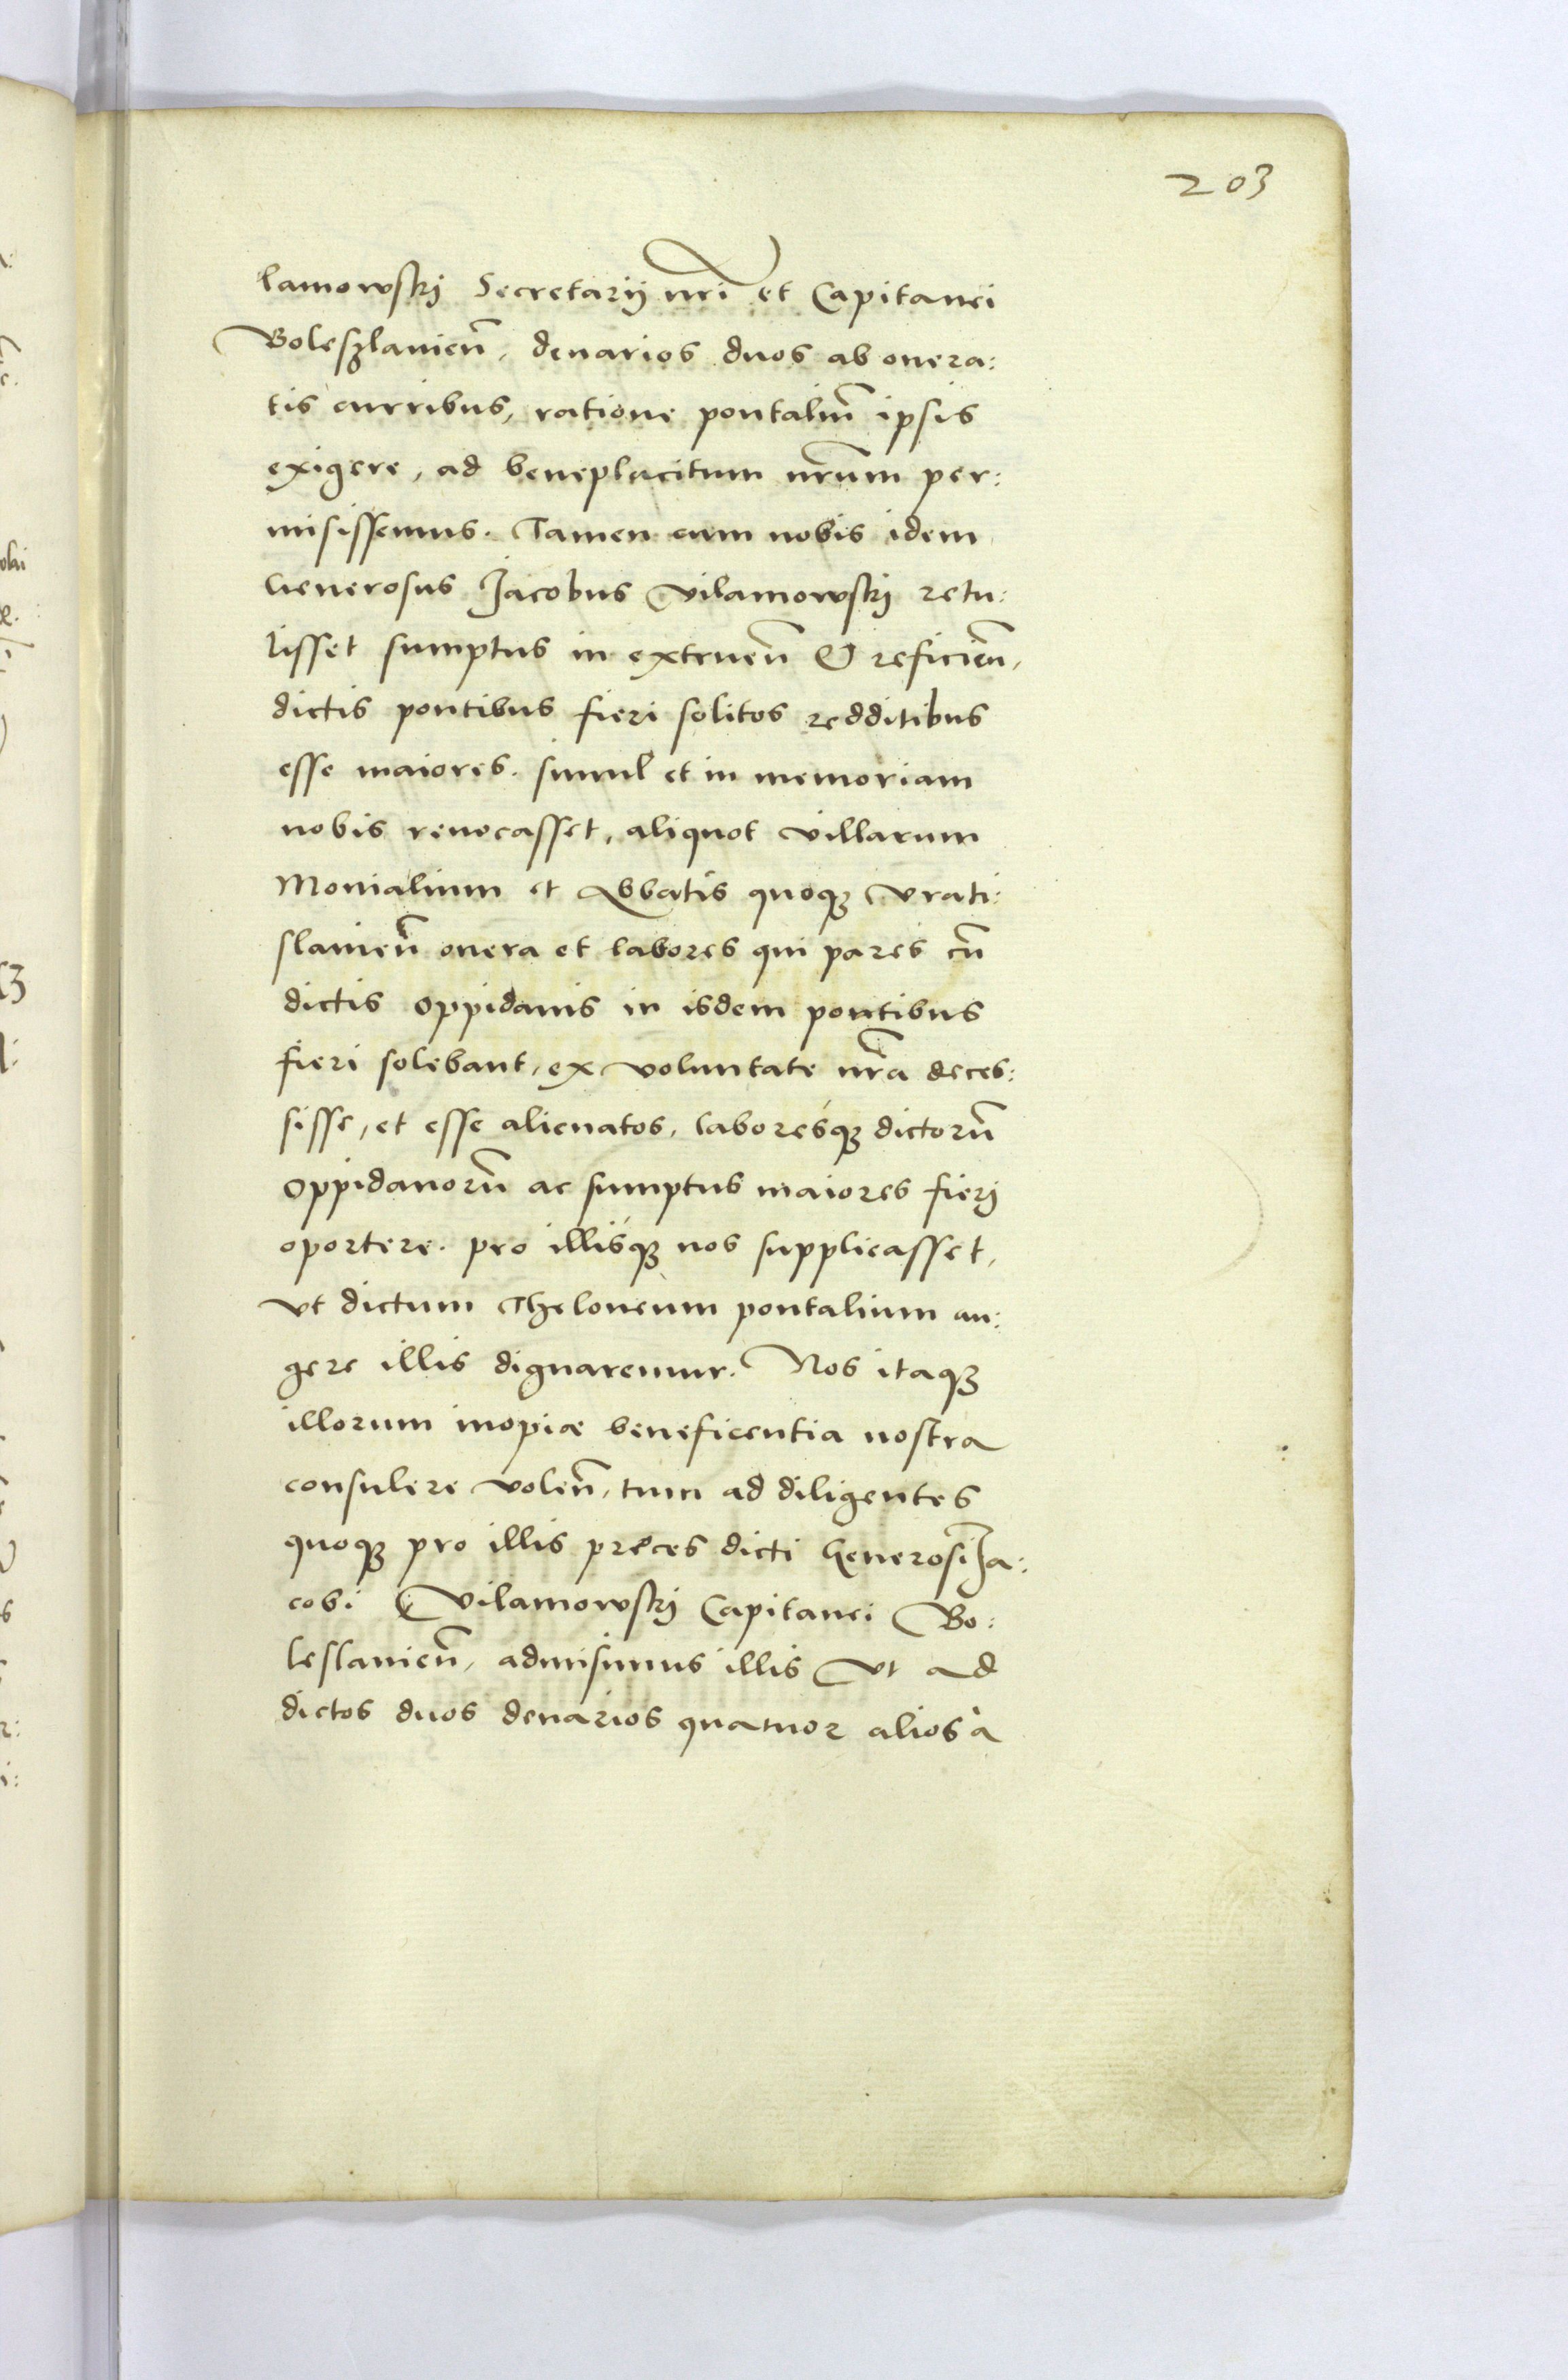 203
lamowskij Secretarij nrĩ et Capitanei
Boleszlavieñ, denarios duos ab onera:
tis curribus, ratione pontaliũ ipsis
exigere, ad beneplacitum nr̃um per:
misissemus. Tamen cum nobis idem
Generosus Jacobus Vilamowskij retu:
lisset sumptus in extrueñ & reficieñ,
dictis pontibus fieri solitos redditibus
esse maiores. simul et in memoriam
nobis revocasset, aliquot villarum
Monialium et Abbatis quoqꝫ Vrati:
slavieñ onera et labores qui pares cũ
dictis oppidanis in isdem pontibus
fieri solebant, ex voluntate nr̃a deces:
sisse, et esse alienatos, laboresqꝫ dictorũ
oppidanorũ ac sumptus maiores fierj
oportere. pro illisqꝫ nos supplicasset,
vt dictum Theloneum pontalium au:
gere illis dignaremur. Nos itaqꝫ
illorum inopiæ beneficentia nostra
consulere voleñ, tum ad diligentes
quoqꝫ pro illis preces dicti Generosi Ja:
cobi Vilamowskij Capitanei Bo:
leslavieñ, admisimus illis Vt ad
dictos duos denarios quatuor alios à